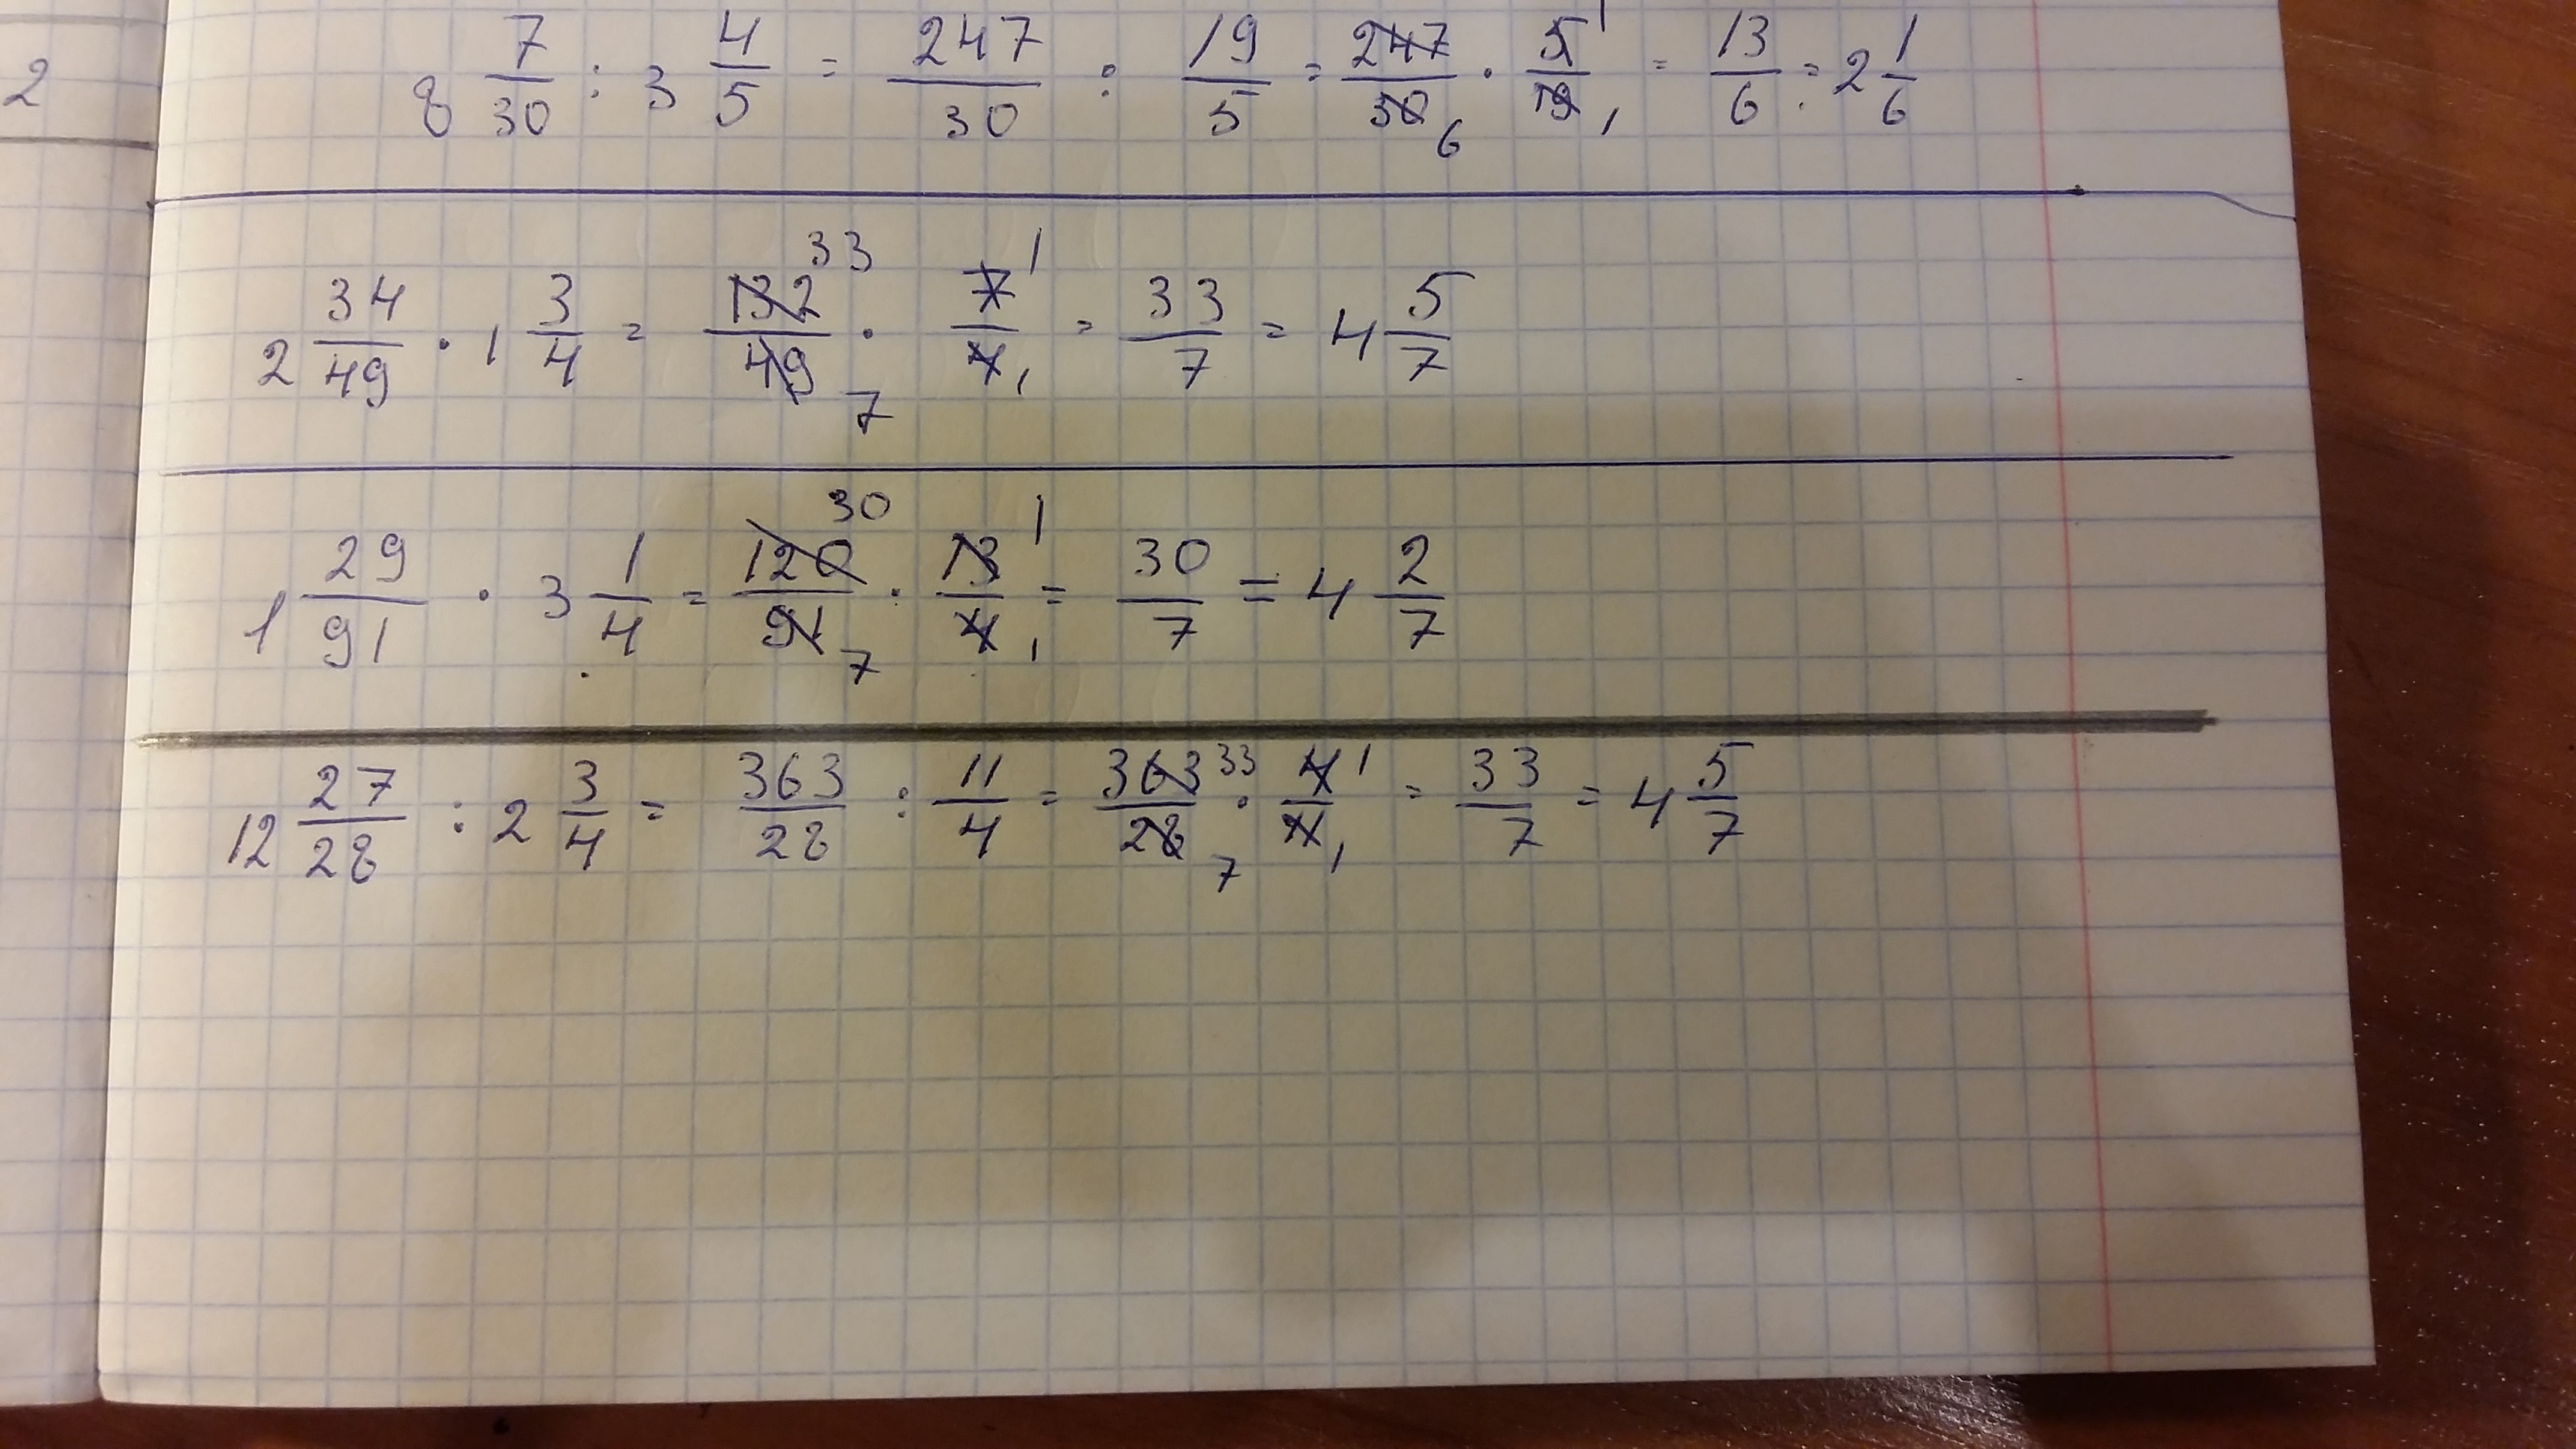 2
8 7/30 : 3 4/5 = 247/30 : 19/5 = 247/30 6 · 5 1/19 1 = 13/6 = 2 1/6
2 34/49 · 1 3/4 = 132 33/49 7 · 7 1/4 1 = 33/7 = 4 5/7
1 29/91 · 3 1/4 = 120 30/91 7 · 13 1/4 1 = 30/7 = 4 2/7
12 27/28 : 2 3/4 = 363/28 : 11/4 = 363 33/28 7 · 4 1/11 1 = 33/7 = 4 5/7